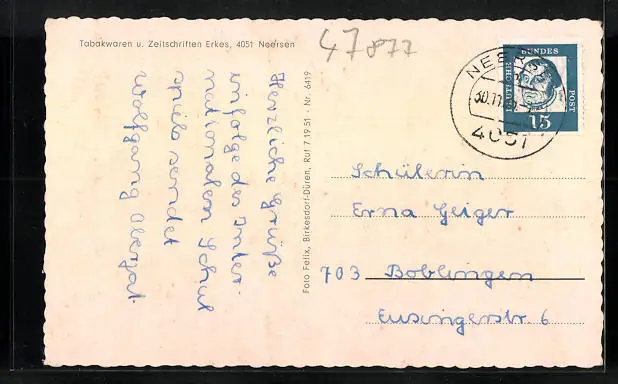 Tabakwaren u. Zeitschriften Erkes, 4051 Neersen
47877
Herzliche Grüße
infolge der Inter-
nationalen Schul
spiele sendet
Wolfgang
Foto Felix, Birkesdorf-Düren, Ruf 7 19 51 - Nr. 6419
NEERSEN
30.11.
4051
DEUTSCHE BUNDES POST
15
Schülerin
Erna Geiger
703 Boblingen
Eusingerstr. 6